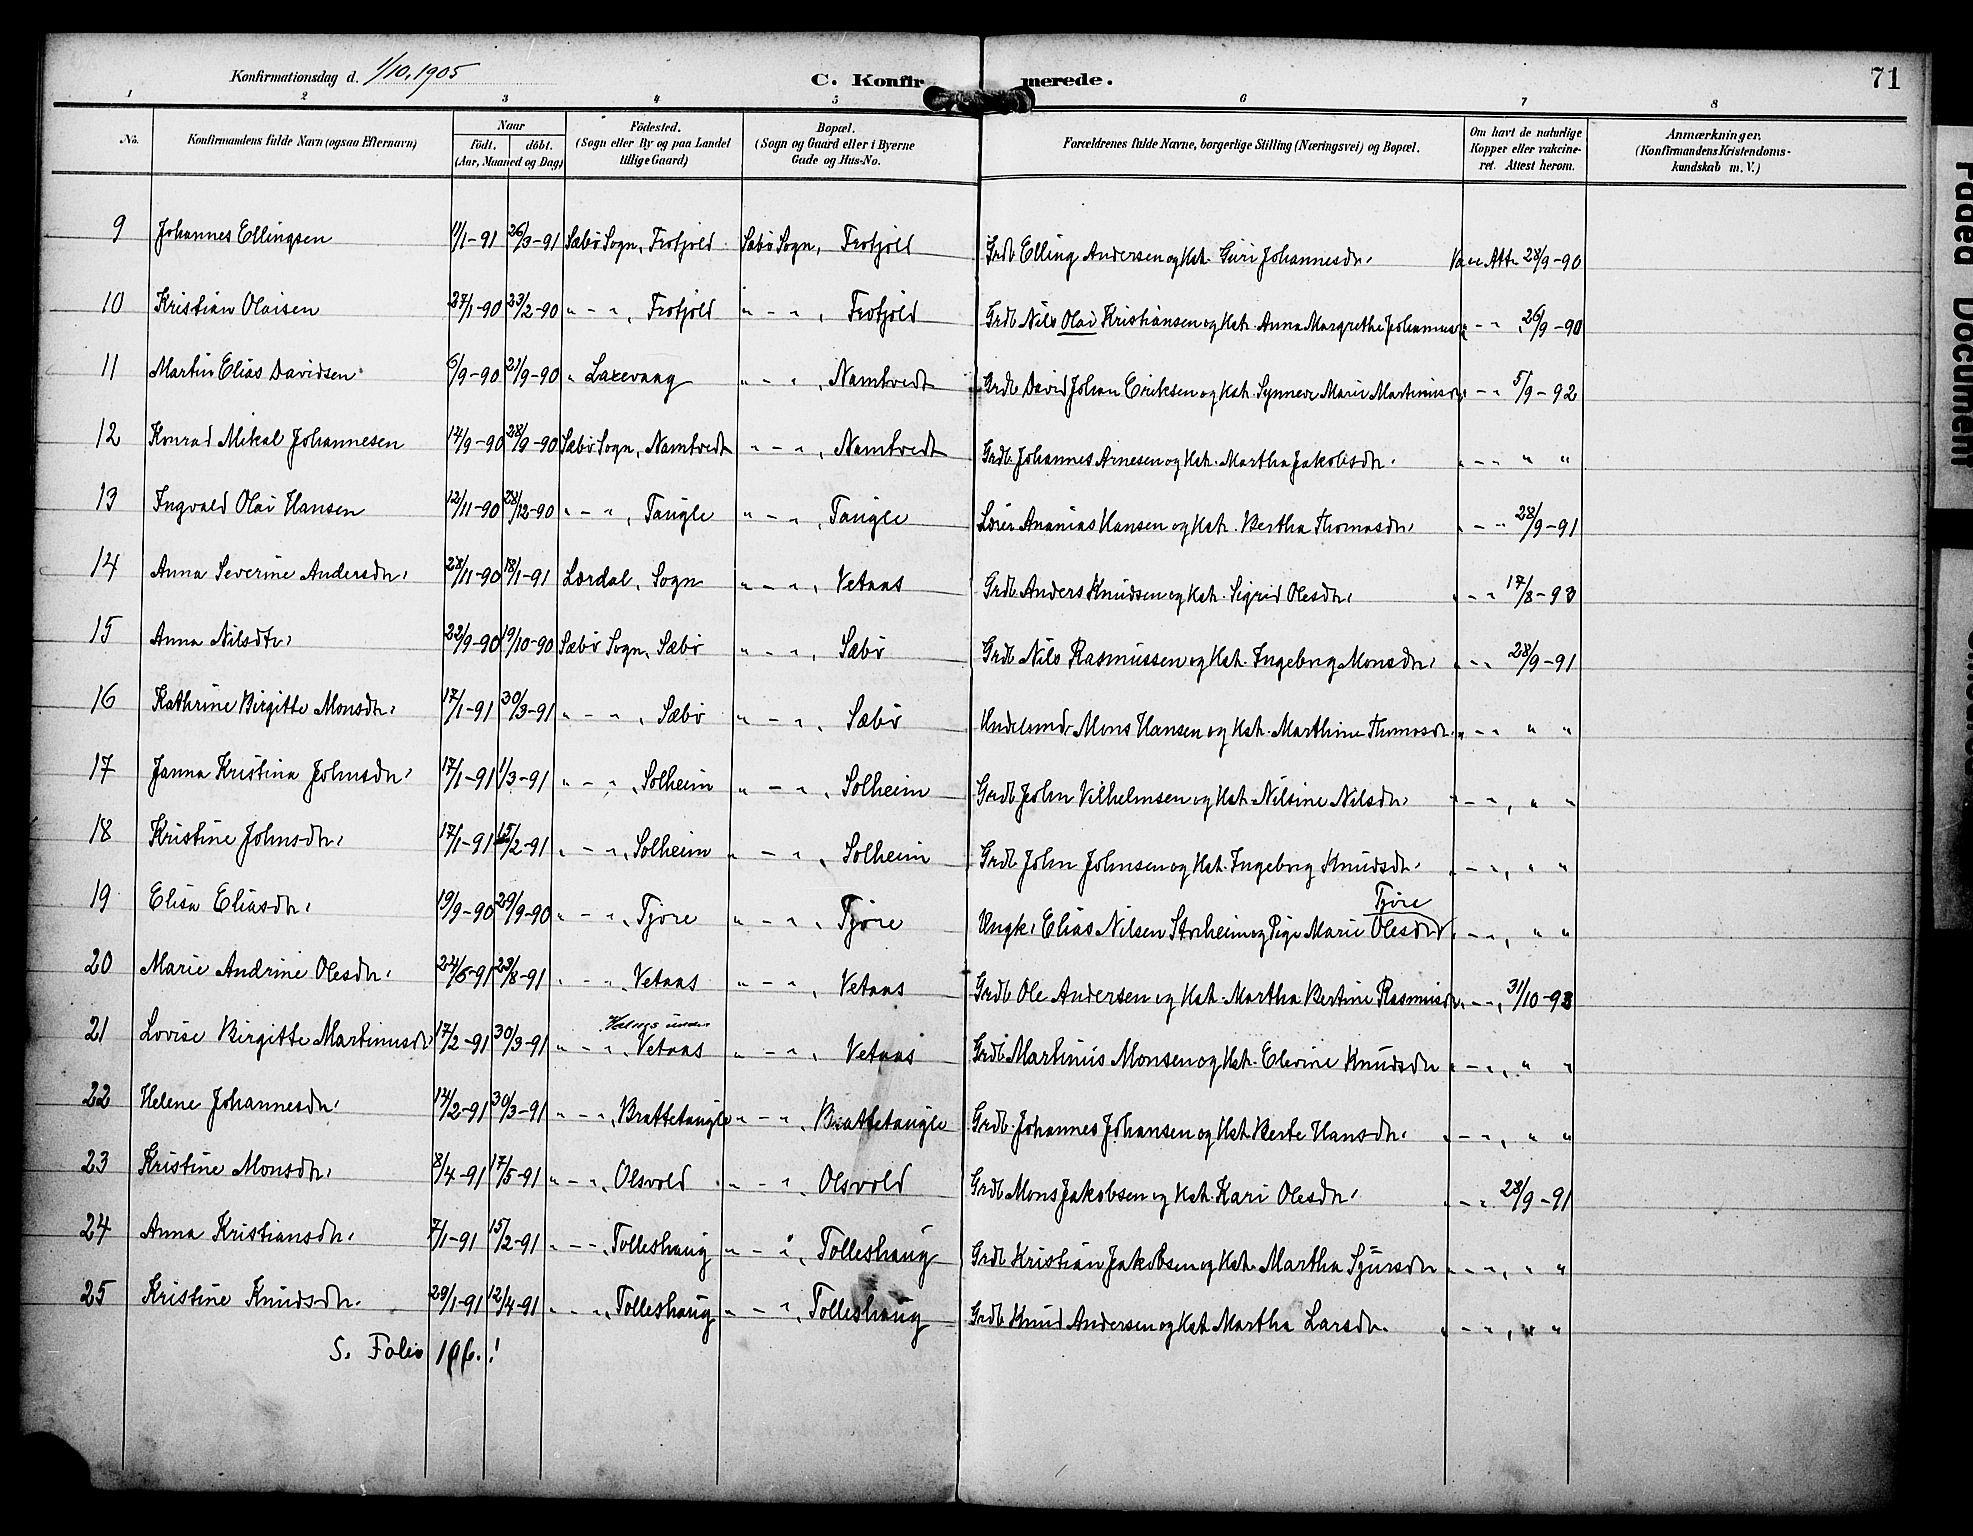 Konfirmationsdag d. 1/10. 1905 C. Konfirmerede. 71
1 2 3 4 5 6 7 8
No. Konfirmandens fulde Navn (ogsaa Efternavn) Naar födt. döbt. (Aar, Maaned og Dag) Födested. (Sogn eller By og paa Landet tillige Gaard) Bopæl. (Sogn og Gaard eller i Byerne Gade og Hus-No. Forældrenes fulde Navne, borgerlige Stilling (Næringsvei) og Bopæl. Om havt de naturlige Kopper eller vakcineret. Attest herom. Anmærkninger. (Konfirmandens Kristendomskundskab m. V.)
9 Johannes Ellingsen 11/1-91 26/3-91 Sæbø Sogn, Frotjold Sæbø Sogn, Frotjold Grdb. Elling Andersen og Hst. Guri Johannesdr. Vacc Att. 28/9-90
10 Kristian Olaisen 27/1-90 23/2-90 " - " , Frotjold " - " , Frotjold Grdb. Nils Olai Kristiansen og Hst. Anna Margrethe Johannesdr " - " 26/9-90
11 Martin Elias Davidsen 6/9-90 21/9-90 " Laxevaag " - " , Namtvedt Grdb. David Johan Eriksen og Hst. Synneve Marie Martinusdr. " - " 5/9-92
12 Konrad Mikal Johannesen 14/9-90 28/9-90 Sæbø Sogn, Namtvedt " - " , Namtvedt Grdb. Johannes Arnesen og Hst. Martha Jakobsdr. " - " " "
13 Ingvald Olai Hansen 12/11-90 28/12-90 " - " , Taugle " - " , Taugle Lærer Ananias Hansen og Hst. Bertha Thomasdr. " - " 28/9-91
14 Anna Severine Andersdr. 28/11-90 18/1-91 Lærdal, Sogn " - " , Vetaas Grdb. Anders Knudsen og Hst. Sigrid Olesdr. " - " 17/8-93
15 Anna Nilsdtr. 22/9-90 19/10-90 Sæbø Sogn, Sæbø " - " , Sæbø Grdb. Nils Rasmussen og Hst. Ingeborg Monsdr. " - " 28/9-91
16 Kathrine Birgitte Monsdr. 17/1-91 30/3-91 " - " , Sæbø " - " , Sæbø Handelsmd. Mons Hansen og Hst. Marthine Thomasdr. " - " " "
17 Janna Kristina Johnsdr. 17/1-91 1/3-91 " - " , Solheim " - " , Solheim Grdb. John Vilhelmsen og Hst. Nilsine Nilsdr. " - " , " "
18 Kristine Johnsdr. 17/1-91 15/2-91 " - " , Solheim " - " , Solheim Grdb. John Johnsen og Hst. Ingeborg Knudsdr. " - " , " "
19 Elisa Eliasdr. 19/9-90 29/9-90 " - " , Tjøre " - " , Tjøre Ungk. Elias Nilsen Storheim og Pige Marie Olesdr. Tjøre " - " , " "
20 Marie Andrine Olesdr. 24/5-91 23/8-91 " - " , Vetaas " - " , Vetaas Grdb. Ole Andersen og Hst. Martha Bertine Rasmusdr. " - " , 31/10-93
21 Lovise Birgitte Martinusdr 17/2-91 30/3-91 " - " , under Vetaas " - " , Vetaas Grdb. Martinus Monsen og Hst. Elevine Knudsdr " - " , " "
22 Helene Johannesdr. 14/2-91 30/3-91 " - " , Brattetaugle " - " , Brattetaugle Grdb. Johannes Johansen og Hst. Berte Hansdr. " - " , " "
23 Kristine Monsdr. 8/4-91 17/5-91 " - " , Olsvold " - " , Olsvold Grdb. Mons Jakobsen og Hst. Kari Olesdr. " - " 28/9-91
24 Anna Kristiansdr. 7/1-91 15/2-91 " - " , Tolleshaug " - " , Tolleshaug Grdb. Kristian Jakobsen og Hst. Martha Sjursdr " - " , " "
25 Kristine Knudsdr. 29/1-91 12/4-91 " - " , Tolleshaug " - " , Tolleshaug Grdb. Knud Andersen og Hst. Martha Larsdr. " - " , " "
S. Folio 106.!
Faded Document